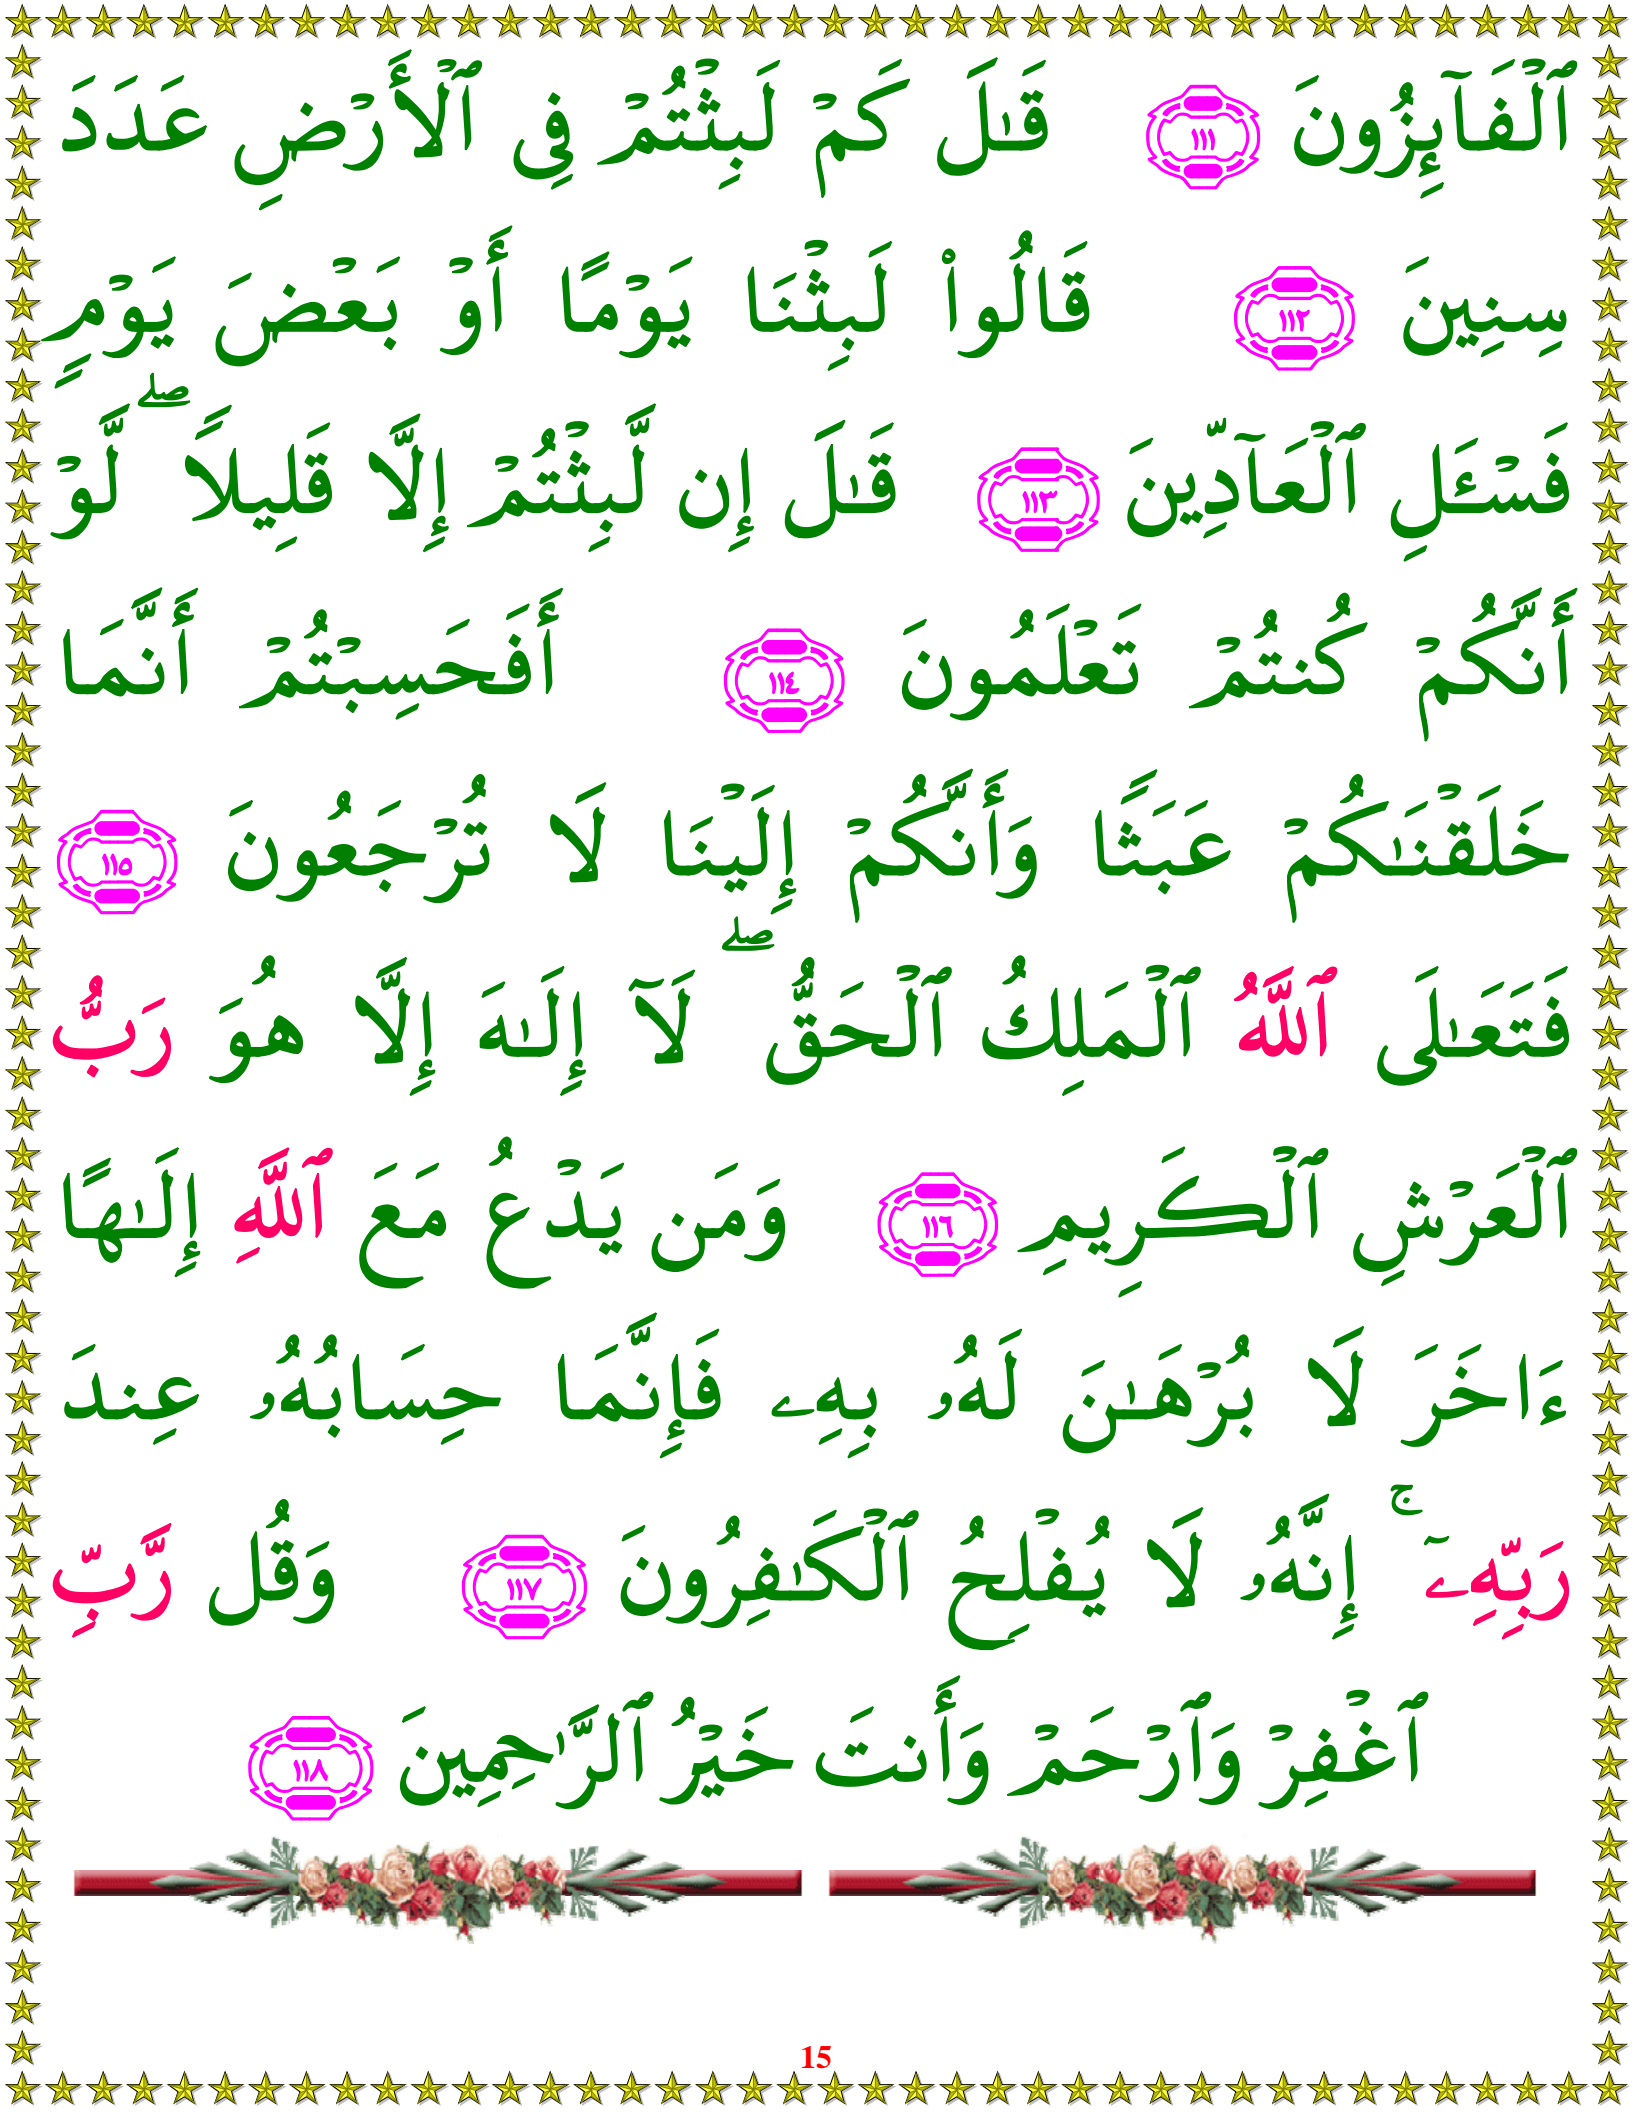 ٱلْفَآئِزُونَ ١١١ قَـٰلَ كَمْ لَبِثْتُمْ فِى ٱلْأَرْضِ عَدَدَ
سِنِينَ ١١٢ قَالُوا۟ لَبِثْنَا يَوْمًا أَوْ بَعْضَ يَوْمٍ
فَسْـَٔلِ ٱلْعَآدِّينَ ١١٣ قَـٰلَ إِن لَّبِثْتُمْ إِلَّا قَلِيلًا ۖ لَّوْ
أَنَّكُمْ كُنتُمْ تَعْلَمُونَ ١١٤ أَفَحَسِبْتُمْ أَنَّمَا
خَلَقْنَـٰكُمْ عَبَثًا وَأَنَّكُمْ إِلَيْنَا لَا تُرْجَعُونَ ١١٥
فَتَعَـٰلَى ٱللَّهُ ٱلْمَلِكُ ٱلْحَقُّ ۖ لَآ إِلَـٰهَ إِلَّا هُوَ رَبُّ
ٱلْعَرْشِ ٱلْكَرِيمِ ١١٦ وَمَن يَدْعُ مَعَ ٱللَّهِ إِلَـٰهًا
ءَاخَرَ لَا بُرْهَـٰنَ لَهُۥ بِهِۦ فَإِنَّمَا حِسَابُهُۥ عِندَ
رَبِّهِۦٓ ۚ إِنَّهُۥ لَا يُفْلِحُ ٱلْكَـٰفِرُونَ ١١٧ وَقُل رَّبِّ
ٱغْفِرْ وَٱرْحَمْ وَأَنتَ خَيْرُ ٱلرَّٰحِمِينَ ١١٨
15